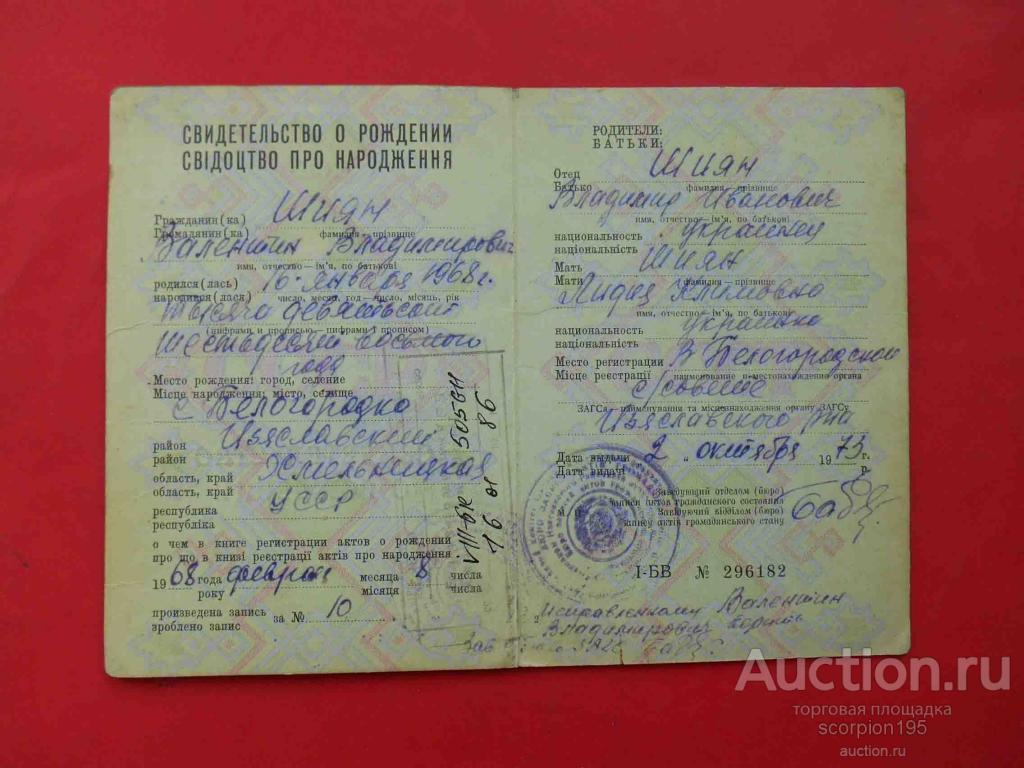 СВИДЕТЕЛЬСТВО О РОЖДЕНИИ
СВІДОЦТВО ПРО НАРОДЖЕННЯ
Гражданин(ка) Шиян
Громадянин(ка) фамилия — прізвище
Валентин Владимирович
имя, отчество — ім'я, по батькові
родился (лась) 16 января 1968 г.
народився (лася) число, месяц, год — число, місяць, рік
тысяча девятьсот
(цифрами и прописью — цифрами і прописом)
шестьдесят восьмого
года
Место рождения: город, селение
Місце народження: місто, селище
с Белогородка
район Изяславский
район
область, край Хмельницкая
область, край
республика УССР
республіка
о чем в книге регистрации актов о рождении
про що в книзі реєстрації актів про народження
1968 года февраля месяца 8 числа
року місяця числа
произведена запись за № 10
зроблено запис
VIII-БК 505
16 01 86
РОДИТЕЛИ:
БАТЬКИ:
Отец Шиян
Батько фамилия — прізвище
Владимир Иванович
имя, отчество — ім'я, по батькові
национальность украинец
національність
Мать Шиян
Мати фамилия — прізвище
Лидия Климовна
имя, отчество — ім'я, по батькові
национальность украинка
національність
Место регистрации В Белогородском
Місце реєстрації наименование и местонахождение органа
с/совете
ЗАГСа — найменування та місцезнаходження органу ЗАГСу
Изяславского р-на
Дата выдачи 2 " октября 1973 г.
Дата видачі р.
Заведующий отделом (бюро)
записи актов гражданского состояния
Завідуючий відділом (бюро)
запису актів громадянського стану
I-БВ № 296182
Исправленному Валентин
Владимирович верить
Auction.ru
торговая площадка
scorpion195
auction.ru